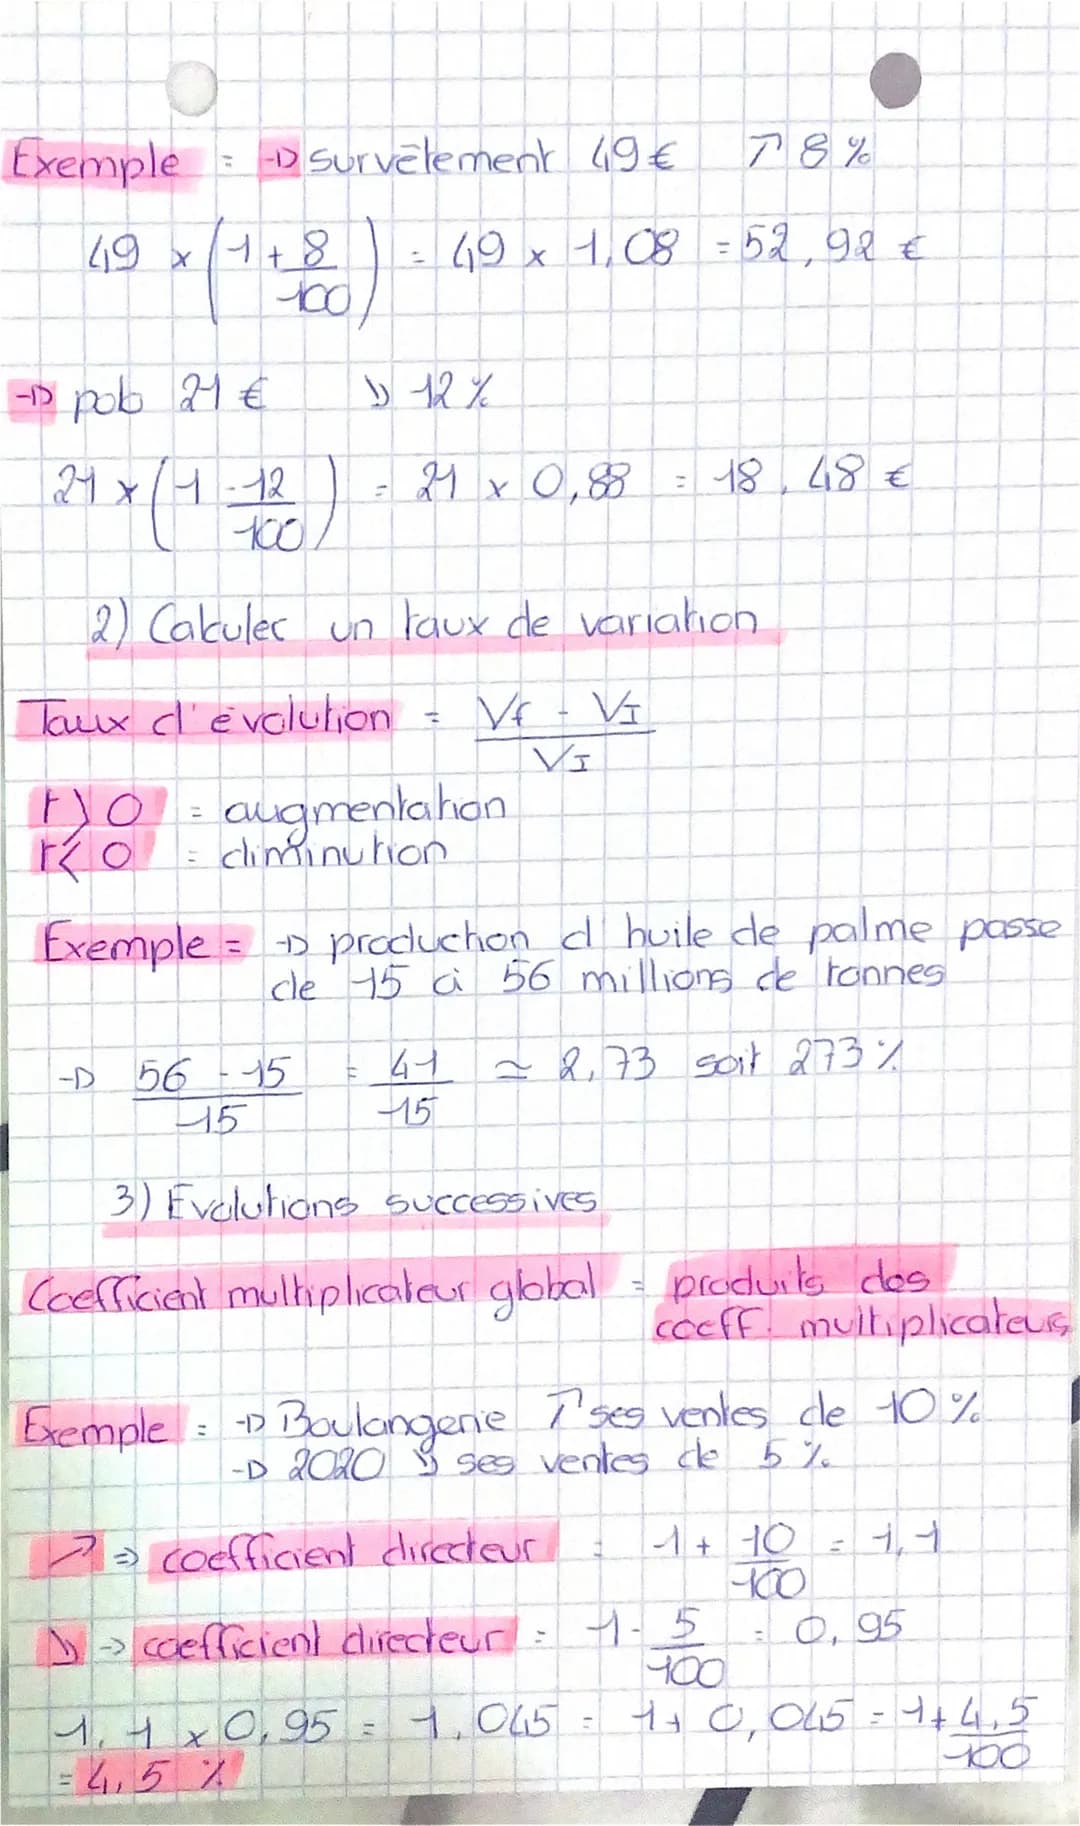 Exemple = → survêtement 49 € ↗ 8 %
49 x (1 + 8/100) = 49 x 1,08 = 52,92 €
→ polo 21 € ↘ 12 %
21 x (1 - 12/100) = 21 x 0,88 = 18,48 €
2) Calculer un taux de variation
Taux d'évolution = (Vf - VI)/VI
t > 0 = augmentation
t < 0 = diminution
Exemple = → production d'huile de palme passe
de 15 à 56 millions de tonnes
→ (56 - 15)/15 = 41/15 ≃ 2,73 soit 273 %
3) Evolutions successives
Coefficient multiplicateur global = produits des
coeff. multiplicateurs
Exemple = → Boulangerie ↗ ses ventes de 10 %
→ 2020 ↘ ses ventes de 5 %.
↗ ⇒ coefficient directeur = 1 + 10/100 = 1,1
↘ → coefficient directeur = 1 - 5/100 = 0,95
1,1 x 0,95 = 1,045 = 1 + 0,045 = 1 + 4,5/100
= 4,5 %